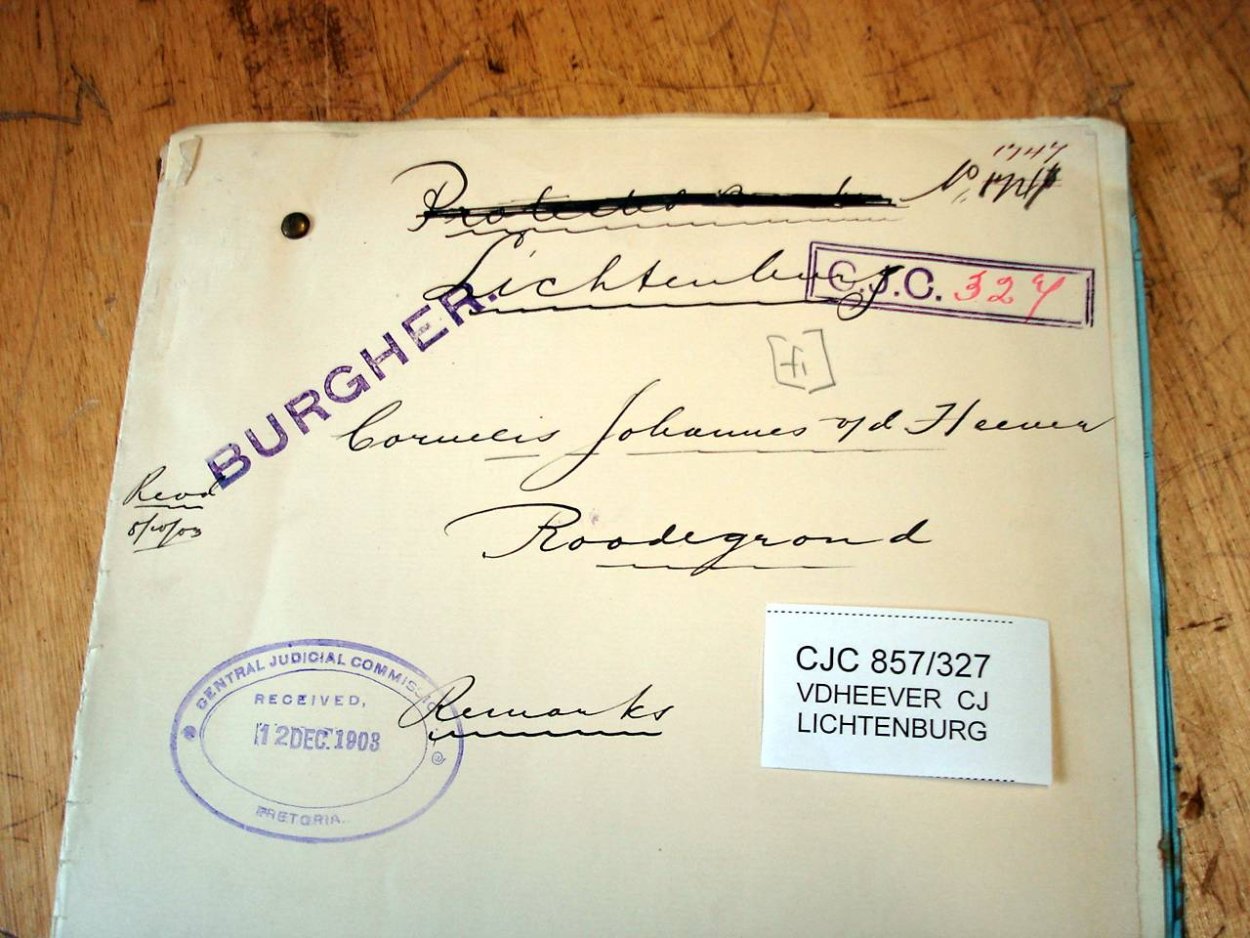 1747
Protected Burgher No.
Lichtenburg
C.J.C. 327
BURGHER.
Cornelis Johannes v/d Heever
Roodegrond
Recd
5/10/03
CENTRAL JUDICIAL COMMISSION
RECEIVED,
12 DEC. 1903
PRETORIA.
Remarks
CJC 857/327
VDHEEVER CJ
LICHTENBURG